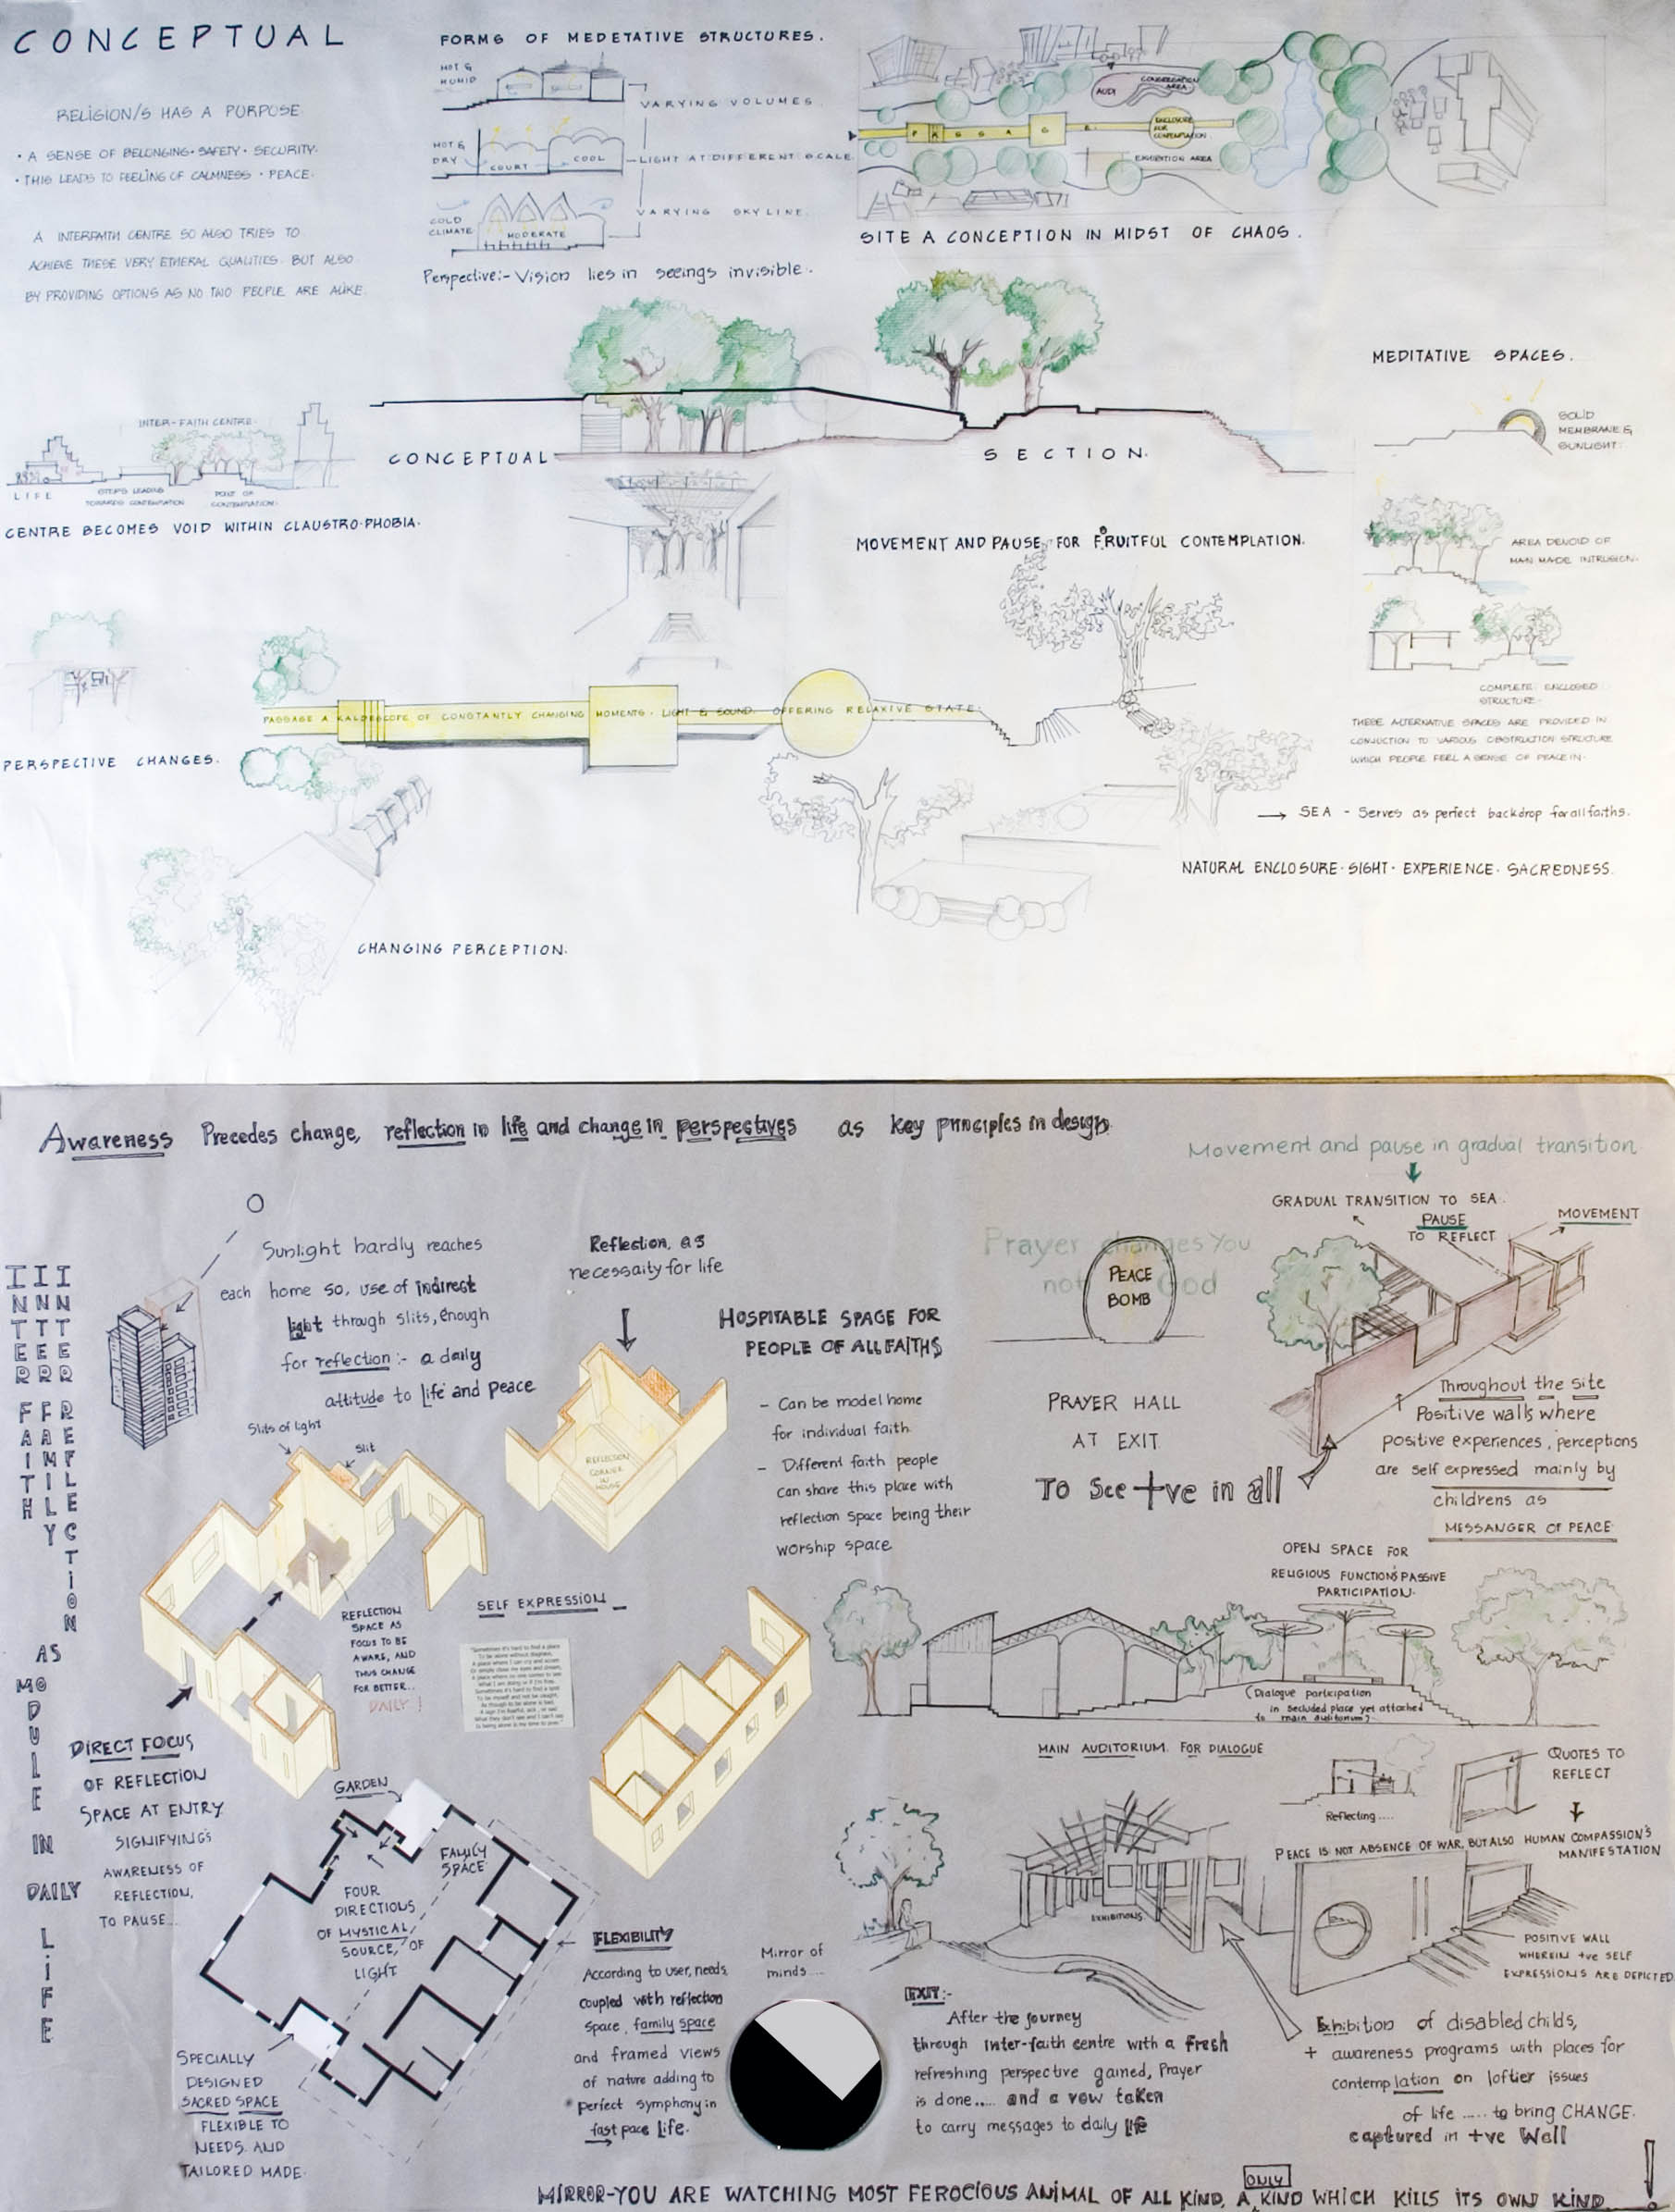 CONCEPTUAL
RELIGION/S HAS A PURPOSE
• A SENSE OF BELONGING • SAFETY • SECURITY.
• THIS LEADS TO FEELING OF CALMNESS • PEACE.
A INTERFAITH CENTRE SO ALSO TRIES TO
ACHIEVE THESE VERY ETHERAL QUALITIES. BUT ALSO
BY PROVIDING OPTIONS AS NO TWO PEOPLE ARE ALIKE.
FORMS OF MEDETATIVE STRUCTURES.
HOT &
HUMID
VARYING VOLUMES
HOT &
DRY
COURT
COOL
LIGHT AT DIFFERENT SCALE
COLD
CLIMATE
MODERATE
VARYING SKYLINE.
Perspective:- Vision lies in seeings invisible.
AUDI
CONGREGATION
AREA
PASSAGE
ENCLOSURE
FOR
CONTEMPLATION
EXHIBITION AREA
SITE A CONCEPTION IN MIDST OF CHAOS.
INTER-FAITH CENTRE
LIFE
STEPS LEADING
TOWARDS CONTEMPLATION
POINT OF
CONTEMPLATION
CENTRE BECOMES VOID WITHIN CLAUSTRO-PHOBIA.
CONCEPTUAL
SECTION.
MEDITATIVE SPACES.
SOLID
MEMBRANE &
SUNLIGHT.
AREA DEVOID OF
MAN MADE INTRUSION.
COMPLETE ENCLOSED
STRUCTURE.
THESE ALTERNATIVE SPACES ARE PROVIDED IN
CONJUCTION TO VARIOUS OBSTRUCTION STRUCTURE
WHICH PEOPLE FEEL A SENSE OF PEACE IN.
MOVEMENT AND PAUSE, FOR FRUITFUL CONTEMPLATION.
PASSAGE A KALDESCOPE OF CONSTANTLY CHANGING MOMENTS. LIGHT & SOUND. OFFERING RELAXIVE STATE.
PERSPECTIVE CHANGES.
→ SEA - Serves as perfect backdrop for all faiths.
NATURAL ENCLOSURE • SIGHT • EXPERIENCE • SACREDNESS.
CHANGING PERCEPTION.
Awareness Precedes change, reflection in life and change in perspectives as key principles in design.
Movement and pause in gradual transition
GRADUAL TRANSITION TO SEA.
PAUSE
TO REFLECT
MOVEMENT
INTER FAITH
INTER FAMILY
INTER REFLECTION
AS
MODULE
IN
DAILY
LIFE
Sunlight hardly reaches
each home so, use of indirect
light through slits, enough
for reflection :- a daily
attitude to life and peace
Slits of light
Slit
Reflection, as
necessaity for life
REFLECTION
CORNER
IN
HOUSE
HOSPITABLE SPACE FOR
PEOPLE OF ALL FAITHS
- Can be model home
for individual faith.
- Different faith people
can share this place with
reflection space being their
worship space
Prayer changes You
not God
PEACE
BOMB
PRAYER HALL
AT EXIT
To See +ve in all
Throughout the site
Positive walls where
positive experiences, perceptions
are self expressed mainly by
childrens as
MESSANGER OF PEACE
REFLECTION
SPACE AS
FOCUS TO BE
AWARE, AND
THUS CHANGE
FOR BETTER...
DAILY !
SELF EXPRESSION
OPEN SPACE FOR
RELIGIOUS FUNCTIONS PASSIVE
PARTICIPATION.
(Dialogue participation
in secluded place yet attached
to main auditorium)
MAIN AUDITORIUM FOR DIALOGUE
DIRECT FOCUS
OF REFLECTION
SPACE AT ENTRY
SIGNIFYING'S
AWARENESS OF
REFLECTION,
TO PAUSE...
GARDEN
FAMILY
SPACE
FOUR
DIRECTIONS
OF MYSTICAL
SOURCE, OF
LIGHT
SPECIALLY
DESIGNED
SACRED SPACE
FLEXIBLE TO
NEEDS AND
TAILORED MADE.
FLEXIBILITY
According to user, needs
coupled with reflection
space, family space
and framed views
of nature adding to
perfect symphony in
fast pace life.
Mirror of
minds....
Reflecting....
QUOTES TO
REFLECT
PEACE IS NOT ABSENCE OF WAR, BUT ALSO HUMAN COMPASSION'S
MANIFESTATION
EXHIBITIONS
POSITIVE WALL
WHEREIN +ve SELF
EXPRESSIONS ARE DEPICTED
EXIT:-
After the journey
through inter-faith centre with a fresh
refreshing perspective gained, Prayer
is done..... and a vow taken
to carry messages to daily life
Exhibition of disabled childs,
+ awareness programs with places for
contemplation on loftier issues
of life ..... to bring CHANGE.
captured in +ve Wall
MIRROR-YOU ARE WATCHING MOST FEROCIOUS ANIMAL OF ALL KIND, A ONLY KIND WHICH KILLS ITS OWN KIND !